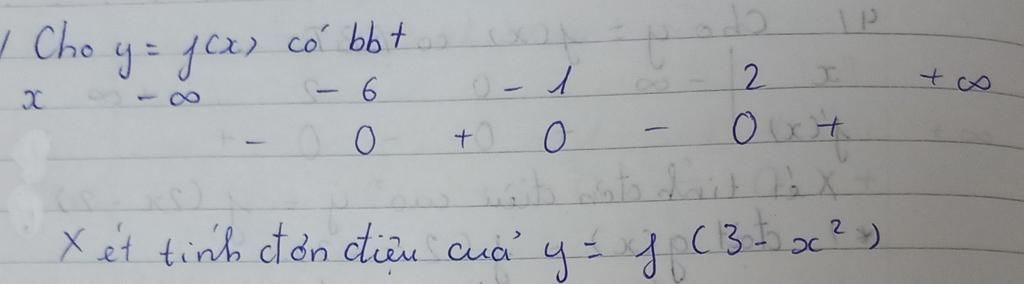 / Cho y = f(x) có bbt
x -∞ -6 -1 2 +∞
- 0 + 0 - 0 +
Xét tính đơn điệu của y = f(3 - x²)